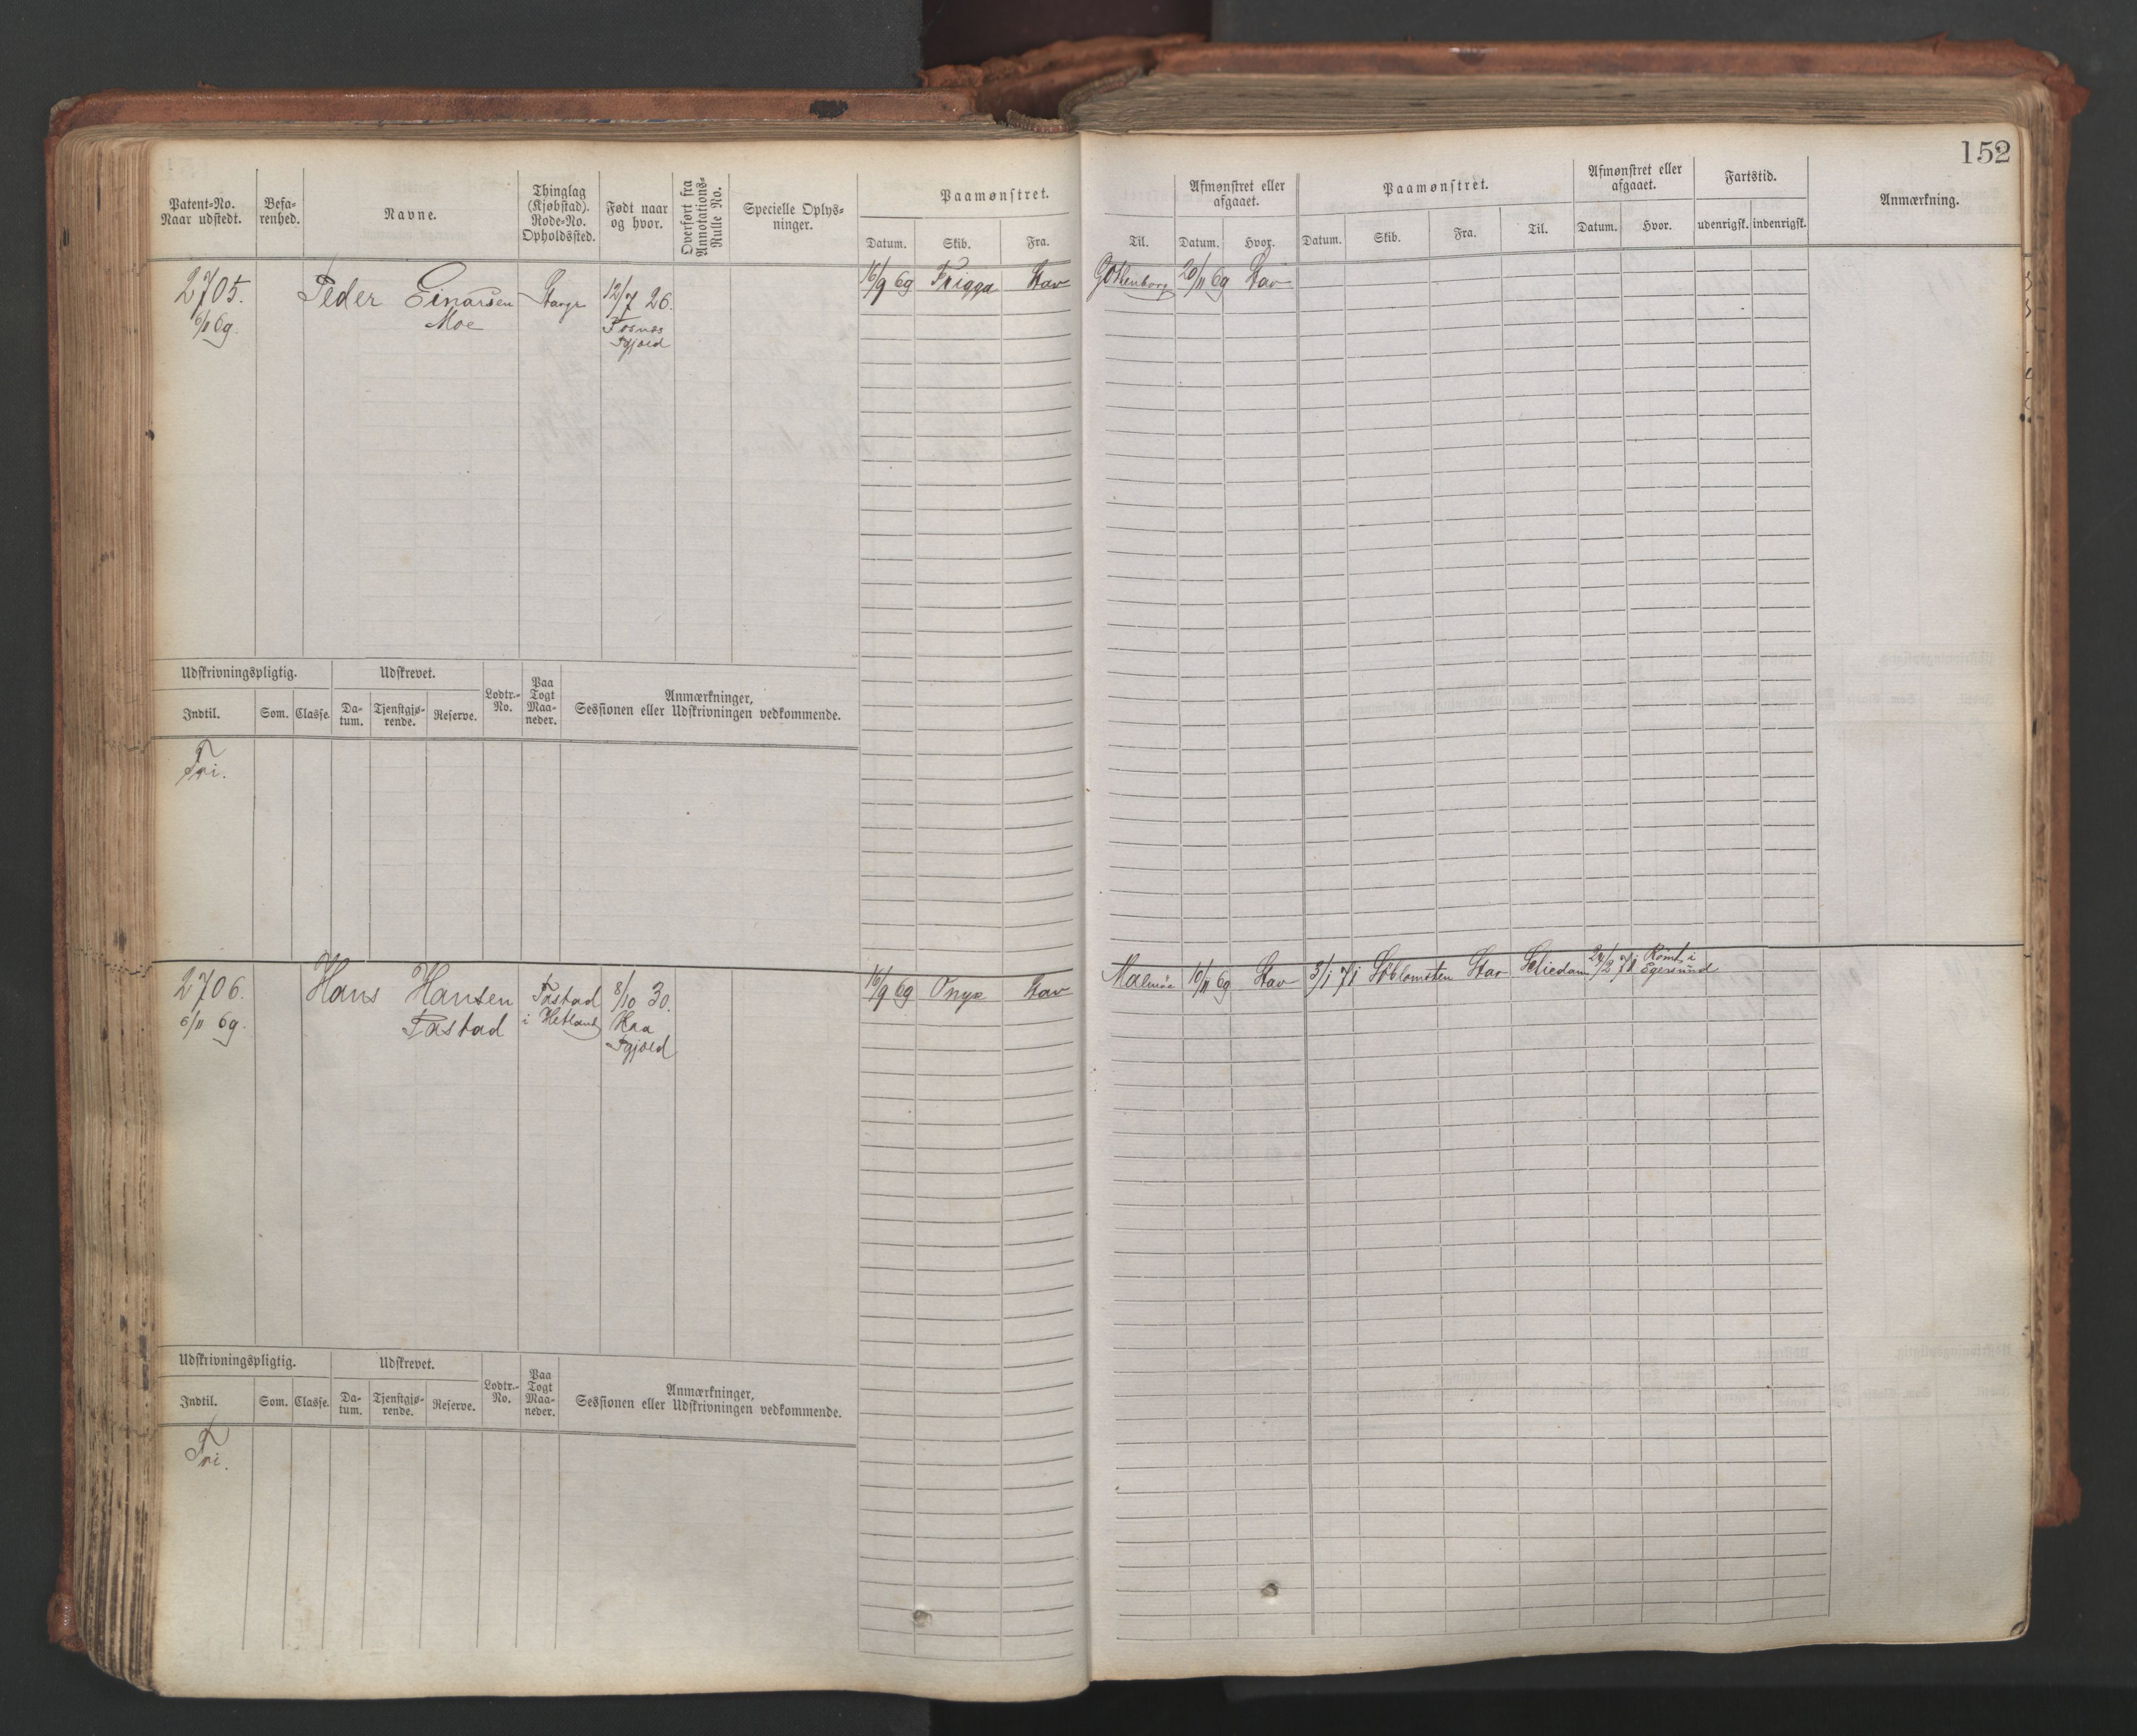 152
Patent-No. Naar udstedt.
Befa-renhed.
Navne.
Thinglag (Kjøbstad). Rode-No. Opholdssted.
Født naar og hvor.
Overført fra Annotations-Rulle No.
Specielle Oplys-ninger.
Paamønstret.
Datum. Skib. Fra. Til.
Afmønstret eller afgaaet.
Datum. Hvor.
Paamønstret.
Datum. Skib. Fra. Til.
Afmønstret eller afgaaet.
Datum. Hvor.
Fartstid.
udenrigsk. indenrigsk.
Anmærkning.
2705. Peder Einarsen 12/7 26. 16/9 69 Frigga Stav Gothenborg 20/11 69 Stav
6/11 69. Moe Fosnæs
Pgjæld
Udskrivningspligtig. Udskrevet. Lodtr.-No. Paa Togt Maa-neder. Anmærkninger,
Sessionen eller Udskrivningen vedkommende.
Indtil. Som. Classe. Da-tum. Tjenstgjø-rende. Reserve.
Fri.
2706. Hans Hansen Tastad 8/10 30. 16/9 69 Onyx Stav Malmö 10/11 69 Stav 3/1 71 Søblomsten Stav Schiedam 24/2 71 Römt i
Egersund
6/11 69. Tastad i Hetland Haa
Pgjæld
Udskrivningspligtig. Udskrevet. Lodtr.-No. Paa Togt Maa-neder. Anmærkninger,
Sessionen eller Udskrivningen vedkommende.
Indtil. Som. Classe. Da-tum. Tjenstgjø-rende. Reserve.
Fri.